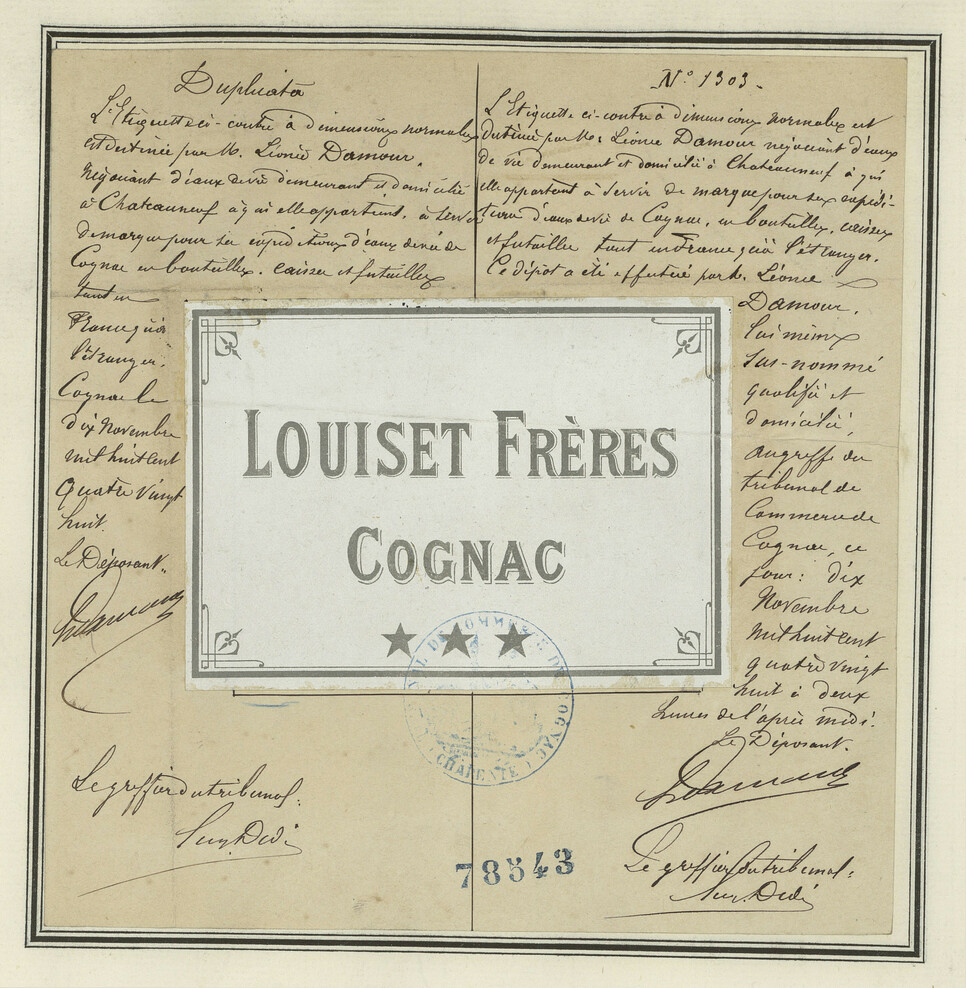 Duplicata
L'Etiquette ci-contre à dimensions normales
est destinée par M. Léonce Damour,
Négociant d'eaux de vie demeurant et domicilié
à Chateauneuf à qui elle appartient, à servir
de marque pour ses expéditions d'eaux de vie de
Cognac en bouteilles, caisses et futailles
tant en
France qu'à
l'étranger.
Cognac le
dix Novembre
mil huit cent
quatre vingt
huit.
Le Déposant.
Le greffier du tribunal:
N° 1303.
L'Etiquette ci-contre à dimensions normales est
destinée par M. Léonce Damour négociant d'eaux
de vie demeurant et domicilié à Chateauneuf à qui
elle appartient à servir de marque pour ses expédi-
tions d'eaux de vie de Cognac, en bouteilles, caisses
et futailles tant en France qu'à l'étranger.
Ce dépot a été effectué par M. Léonce
Damour,
lui même
sus-nommé
qualifié et
domicilié,
au greffe du
tribunal de
Commerce de
Cognac, ce
jour: dix
Novembre
mil huit cent
quatre vingt
huit à deux
heures de l'après midi.
Le Déposant.
Damour
Le greffier du tribunal:
LOUISET FRÈRES
COGNAC
TRIBUNAL DE COMMERCE DE COGNAC
CHARENTE
78543